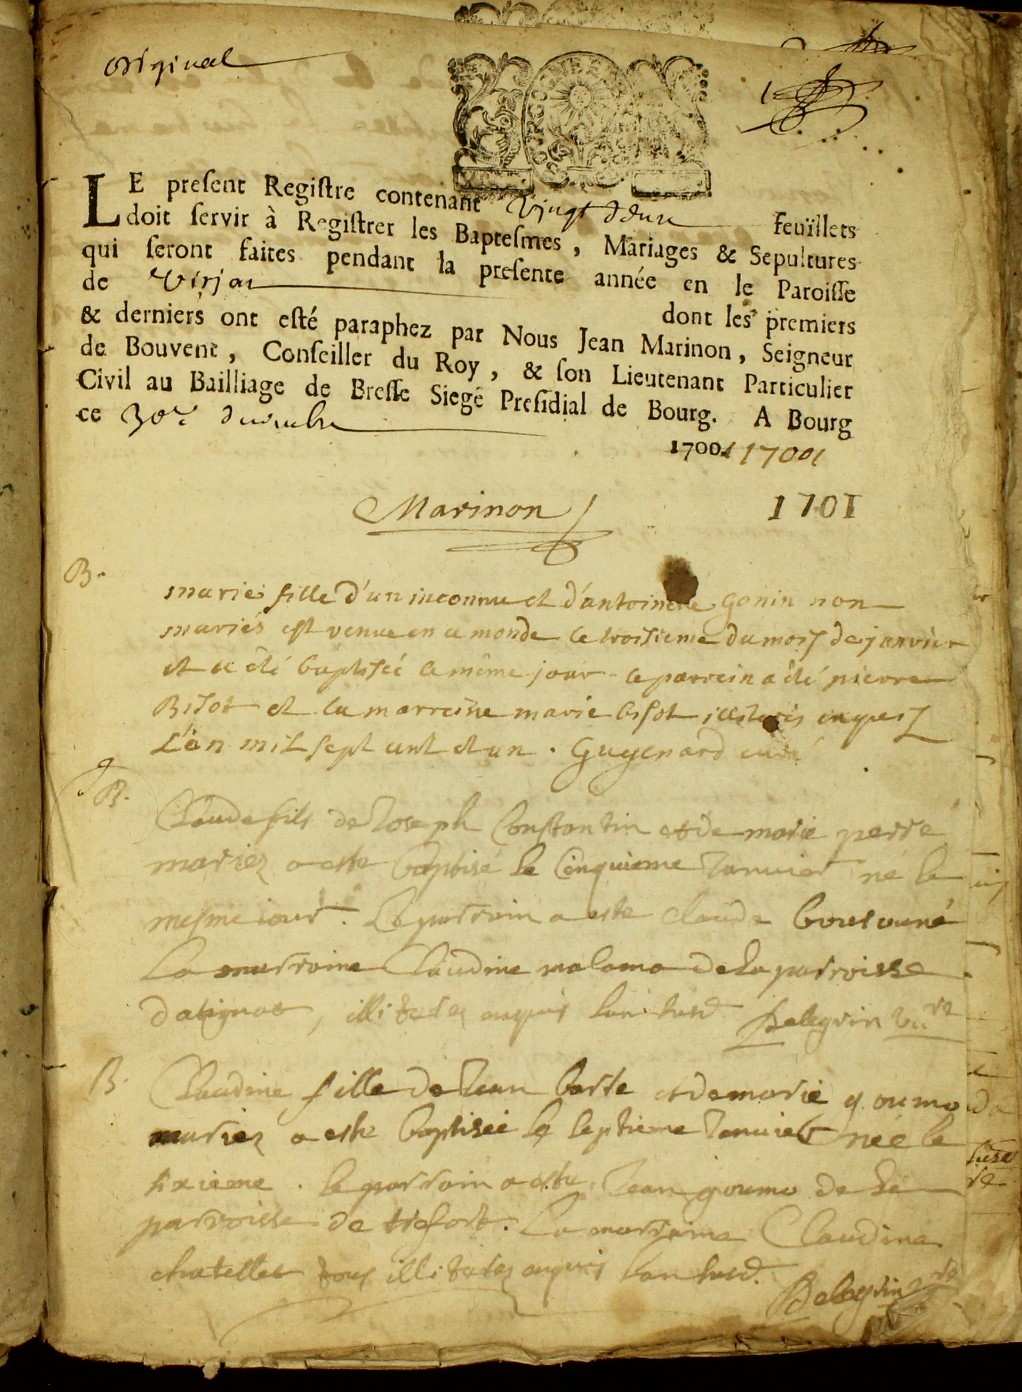 original
LE present Registre contenant vingt deux feüillets
doit servir à Registrer les Baptesmes, Mariages & Sepultures
qui seront faites pendant la presente année en le Paroisse
de Virjat dont les premiers
& derniers ont esté paraphez par Nous Jean Marinon, Seigneur
de Bouvent, Conseiller du Roy, & son Lieutenant Particulier
Civil au Bailliage de Bresse Siege Presidial de Bourg. A Bourg
ce 30e decembre
1700 1700
Marinon
1701
B.
marie fille d'un inconnu et d'antoinette gonin non
mariés est venue en ce monde le troisieme du mois de janvier
et a été baptisée le même jour le parrein a été pierre
Bisot et la marreine marie bisot illiterés enquis
L'an mil sept cent et un. Guyenard curé
B.
Claude fils de Joseph Constantin et de marie perre
mariez a este baptisé le Cinquieme Januier ne le
mesme iour. Le parrain a este claude
La marraine Claudine malama de la parroisse
, illiterez enquis lan susd. Pelegrin
B.
Claudine fille de Jean et de marie goumo
mariez a este baptisée le septieme Januier nee le
sixieme. le parrain a este Jean goumo de la
parroisse de trefort. La marraine Claudine
chatellet tous illiterez enquis lan susd.
Pelegrin